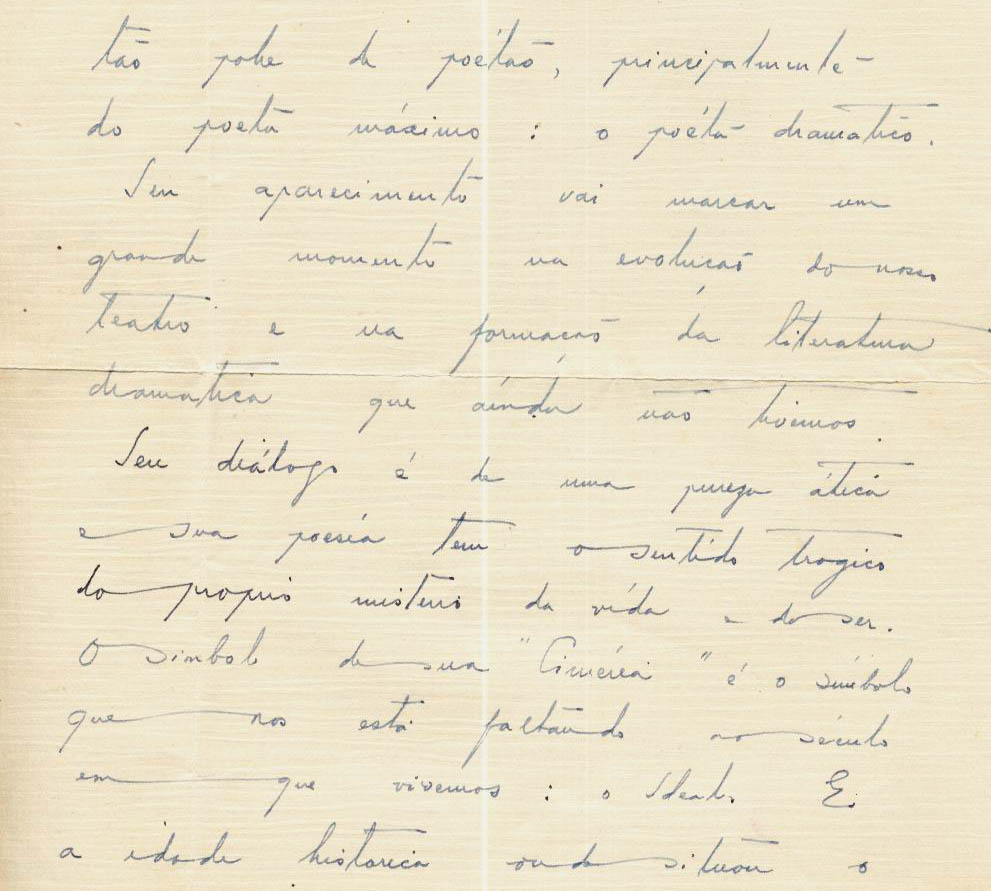 tão pobre de poétas, principalmente
do poeta máximo : o poéta dramatico.
Seu aparecimento vai marcar um
grande momento na evolucão do nosso
teatro e na formacão da literatura
dramatica que áinda não tivemos.
Seu diálogo é de uma pureza ática
e sua poesia tem o sentido tragico
do proprio misterio da vída e do ser.
O simbolo de sua "Ciméria" é o símbolo
que nos está faltando no século
em que vivemos : o Ideal. E
a idade historica onde situou o